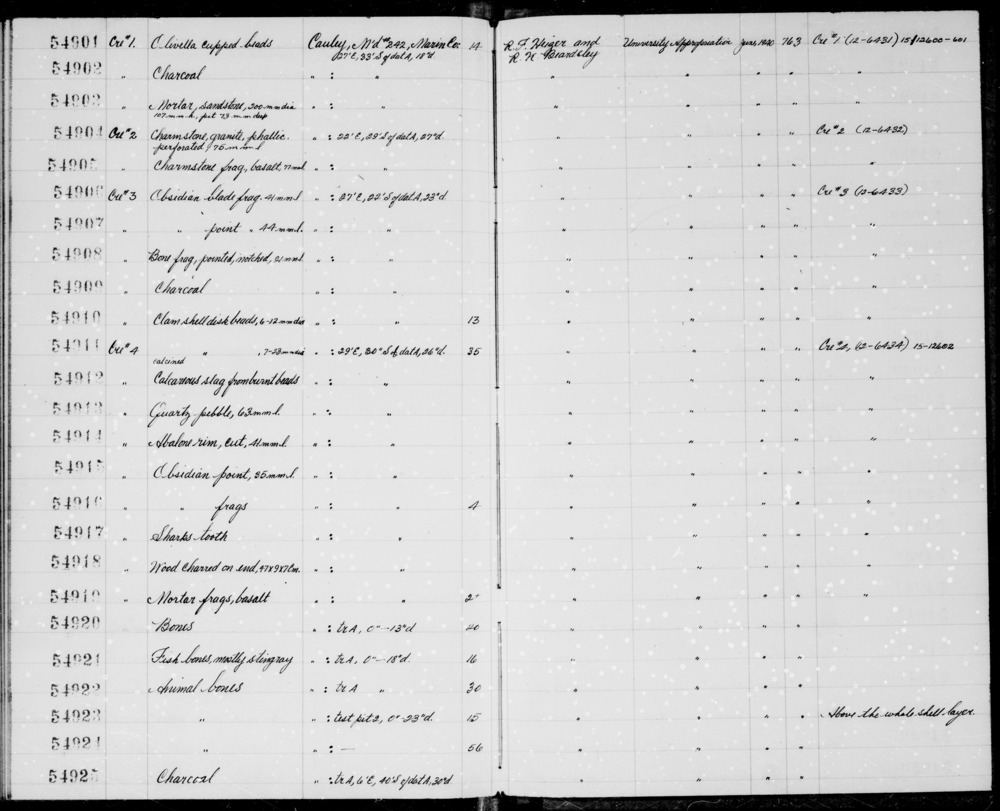 54901 Cre #1. Olivella cupped beads Cauley, M'd #242, Marin Co. 14 R. F. Heizer and University Appropriation June 1940 763 Cre #1 (12-6431) 15-12600-601
27'E, 33'S of dat A, 18"d. R. K. Beardsley
54902 " Charcoal " : " " " " " "
54903 " Mortar, sandstone, 200 mm dia " : " " " " "
107 m.m. h., pit 73 m m deep
54904 Cre #2 Charmstone, granite, phallic. " : 22'E, 29'S of dat A, 27"d. " " " " Cre #2 (12-6432)
perforated, 75 m m l
54905 " Charmstone frag, basalt, 77 mm l " : " " " " " "
54906 Cre #3 Obsidian blade frag. 41 mm l " : 27'E, 22'S of dat A, 23"d " " " " Cre #3 (12-6433)
54907 " " point " 44 mm l. " : " " " " " "
54908 " Bone frag, pointed, notched, 21 mm l " : " " " " " "
54909 " Charcoal " : " " " " " "
54910 " Clam shell disk beads, 6-12 mm dia " : " 13 " " " " "
54911 Cre #4 " , 7-23 mm dia " : 29'E, 30"S of dat A, 26"d. 35 " " " " Cre #4, (12-6434) 15-12602
calcined
54912 " Calcareous slag from burnt beads " : " " " " " "
54913 " Quartz pebble, 63 mm l. " : " " " " " "
54914 " Abalone rim, cut, 41 mm l. " : " " " " " "
54915 " Obsidian point, 35 mm l. " : " " " " " "
54916 " " frags " : " 4 " " " " "
54917 " Sharks tooth " : " " " " " "
54918 " Wood charred on end, 47X9X7 Cm. " : " " " " " "
54919 " Mortar frags, basalt " : " 2+ " " " " "
54920 Bones " : tr A, 0"-13"d 40 " " " "
54921 Fish bones, mostly stingray " : tr A, 0"-18"d. 16 " " " "
54922 Animal bones " : tr A " 30 " " " "
54923 " " : test pit 2, 0"-23"d. 15 " " " " Above the whole shell layer.
54924 " " : — 56 " " " "
54925 Charcoal " : tr A, 6'E, 40'S of dat A, 30"d " " " "